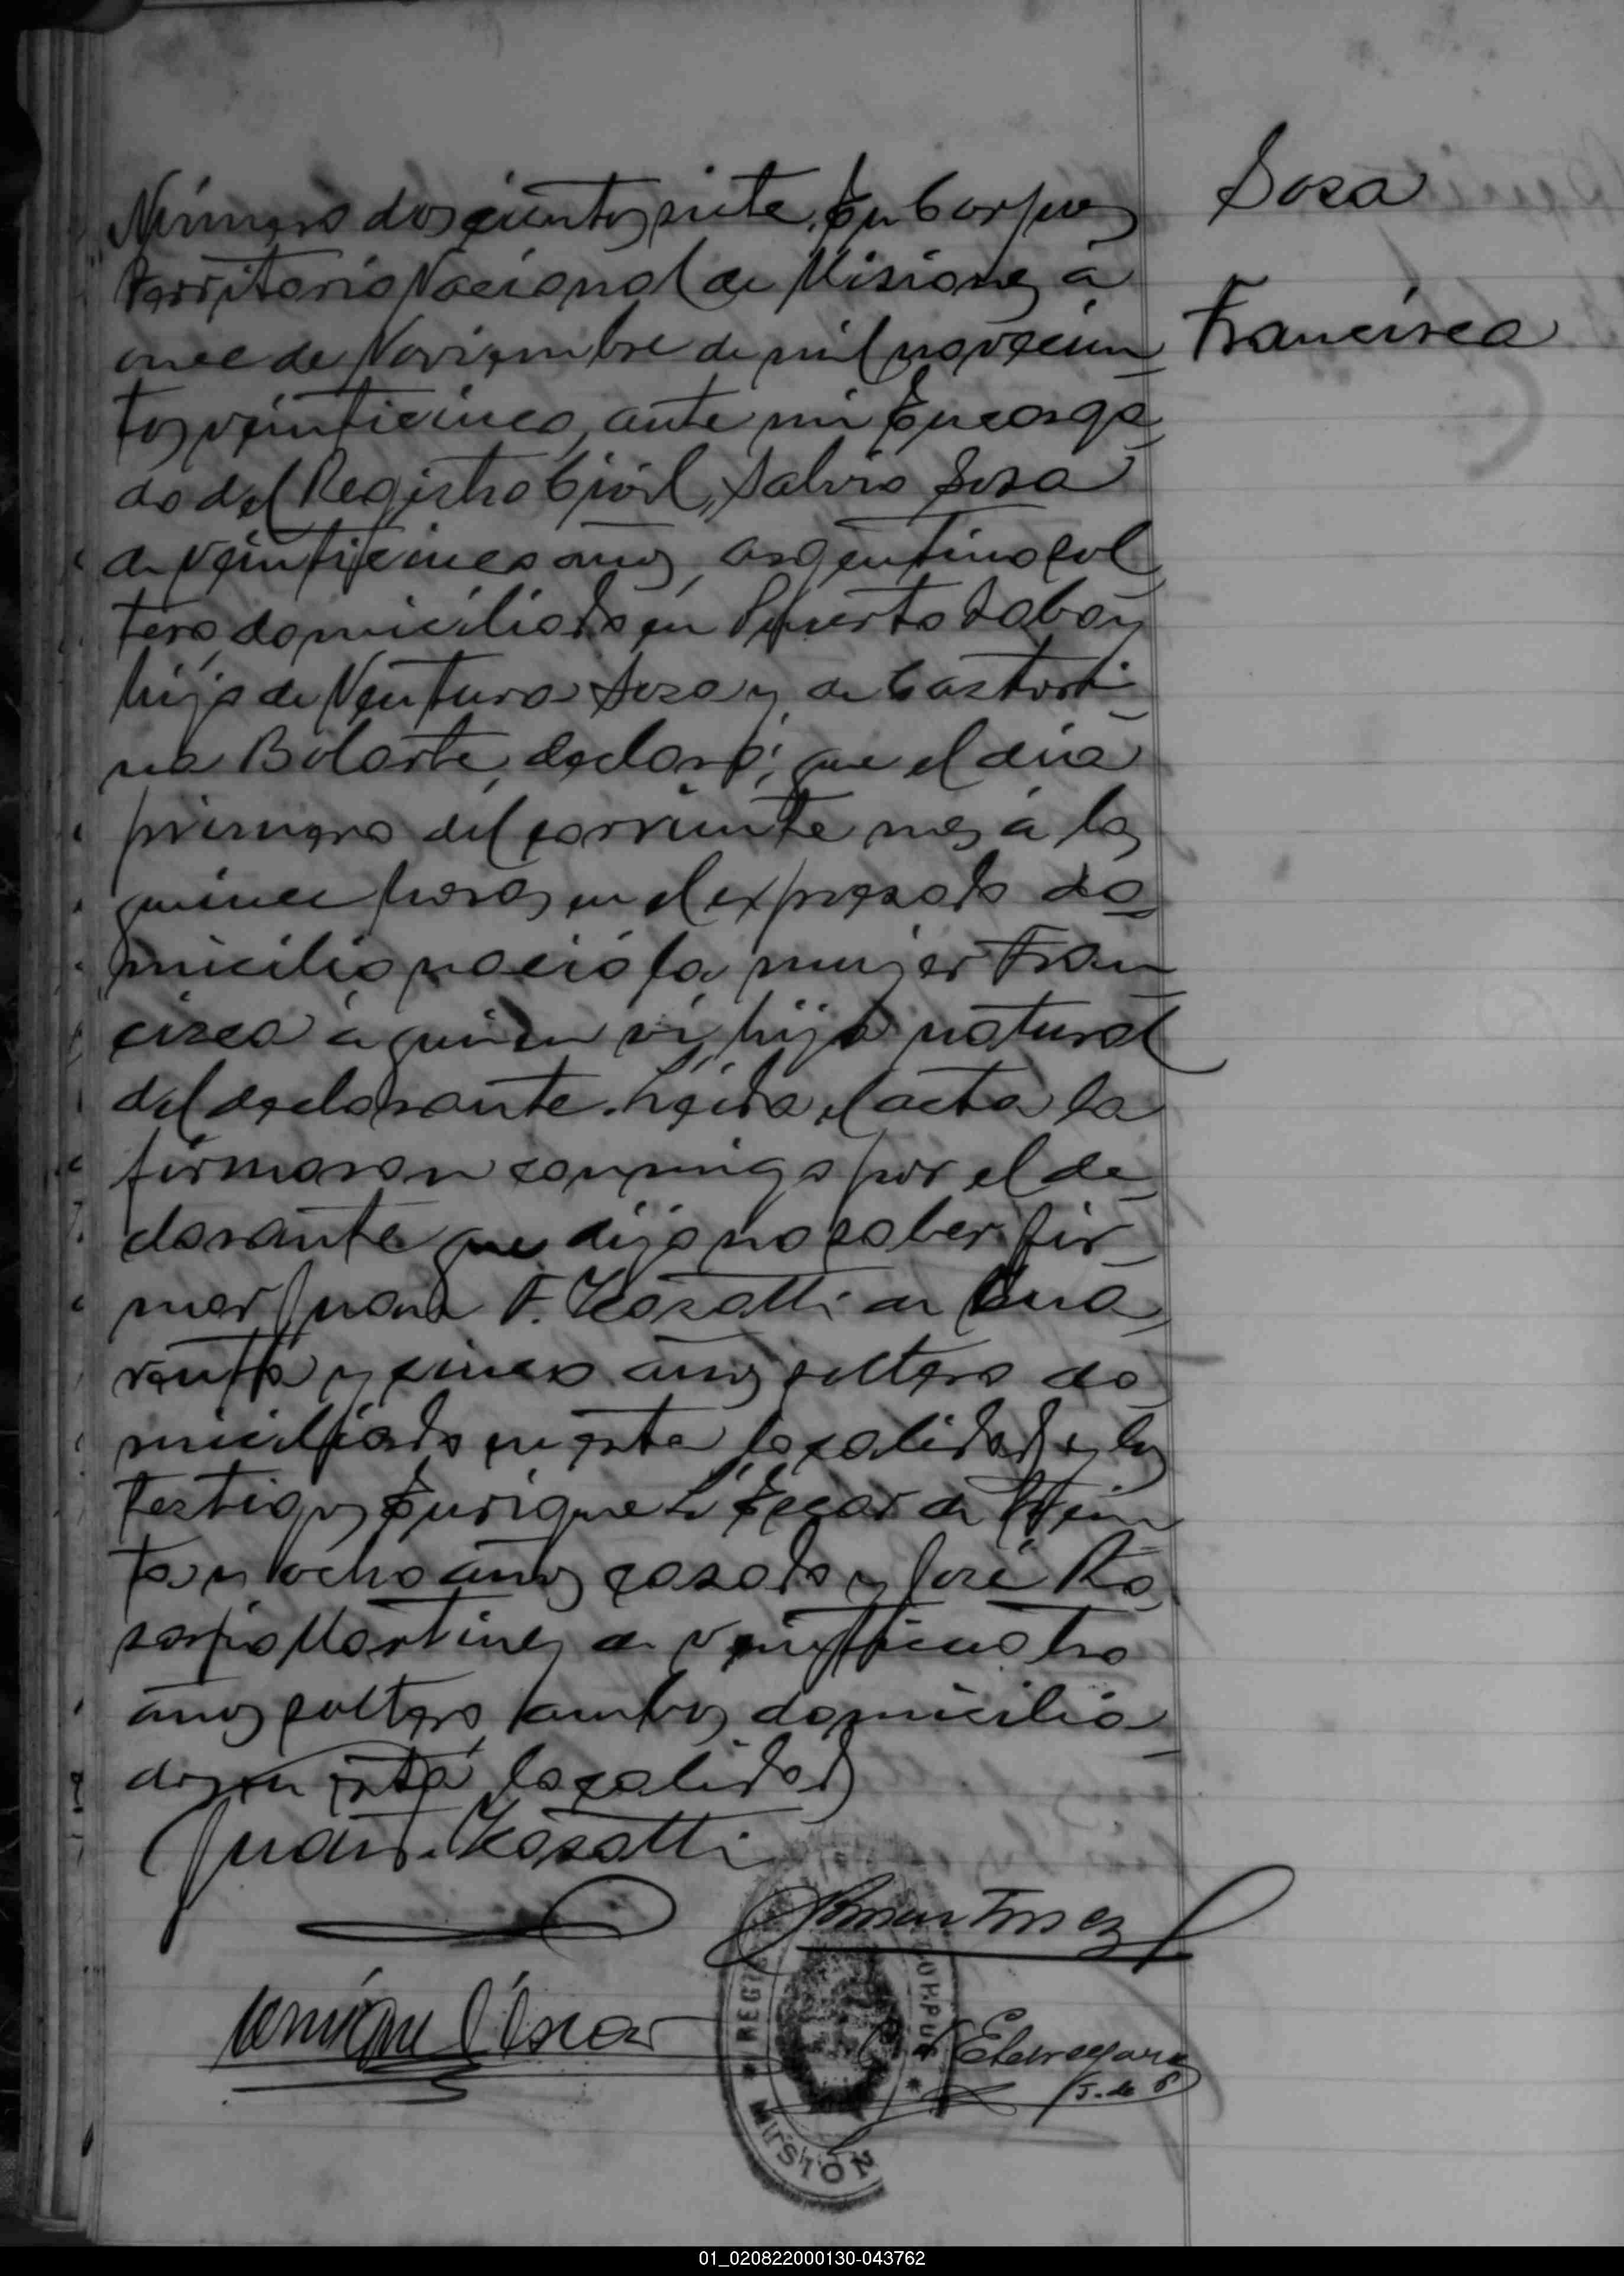 Sosa
Francisca
Número doscientos siete. En Corpus
Territorio Nacional de Misiones, a
once de Noviembre de mil novecien
tos veinticinco, ante mi Encarga
do del Registro Civil, Salvio Sosa
de veinticinco años, argentino sol
tero, domiciliado en Puerto
hijo de Ventura Sosa y de Castori
na Bolarte, declaró; que el dia
primero del corriente mes á las
quince horas en el expresado do
micilio nació la mujer Fran
cisca á quien vi, hija natural
del declarante. Leida el acta la
firmaron conmigo por el de
clarante que dijo no saber fir
mar Juan F. Kosatti de cua
renta y cinco años soltero do
miciliado en esta localidad y los
testigos Enrique L'Escar de trein
ta y ocho años casado y José Ro
sario Martinez de veinticuatro
años soltero, ambos domicilia
dos en esta localidad
Juan F. Kosatti
Martinez
Enrique L'Escar
Etcheregaray
J. de P
REGIS
CORPUS
MISION
01_020822000130-043762